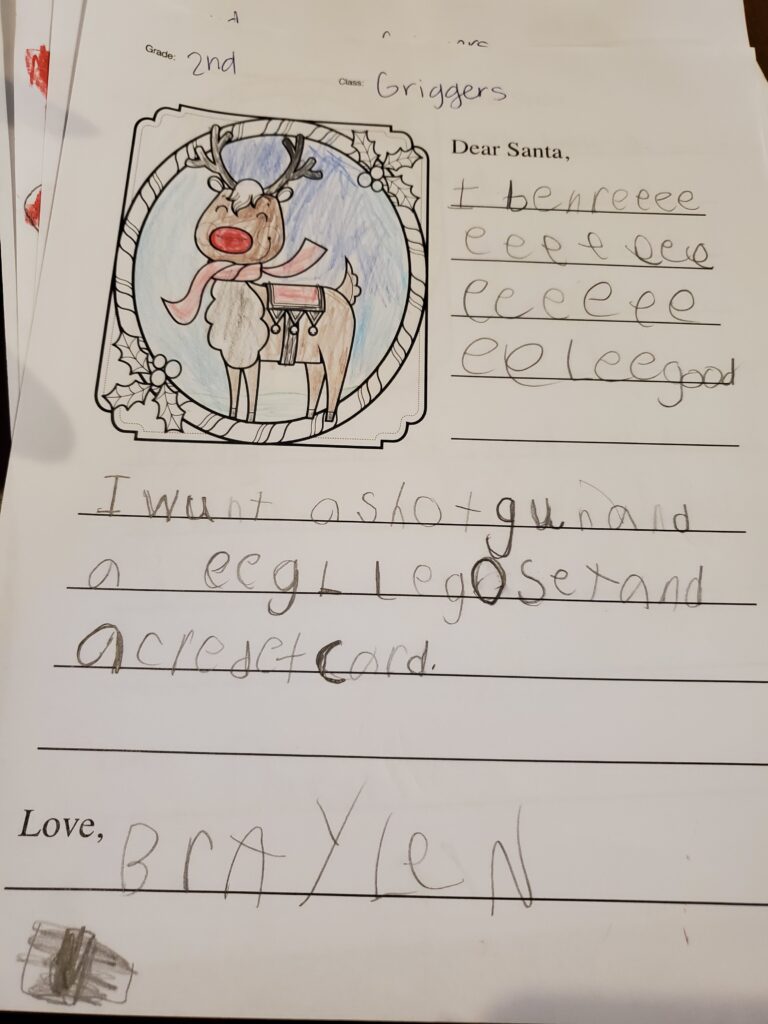 Grade: 2nd
Class: Griggers
Dear Santa,
I benreeee
e e e e e e e
e e e e e e
e e l e e good
I wunt a shot gun and
a eegl lego set and
a credet card.
Love, BrAYleN